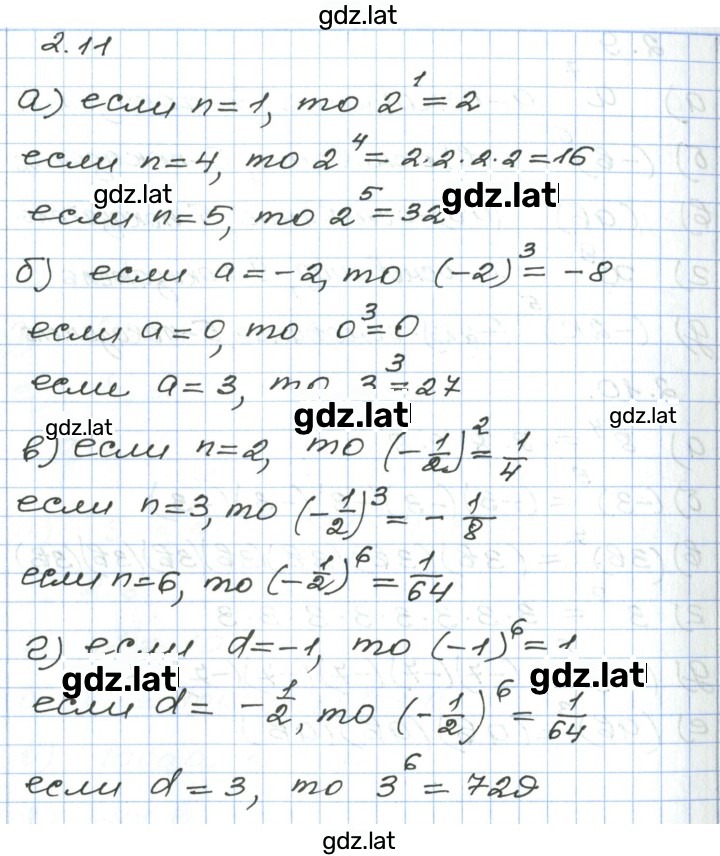 gdz.lat
2.11
а) если n = 1, то 2¹ = 2
если n = 4, то 2⁴ = 2·2·2·2 = 16
gdz.lat gdz.lat
если n = 5, то 2⁵ = 32
б) если a = -2, то (-2)³ = -8
если a = 0, то 0³ = 0
если a = 3, то 3³ = 27
gdz.lat gdz.lat gdz.lat
в) если n = 2, то (-1/2)² = 1/4
если n = 3, то (-1/2)³ = -1/8
если n = 6, то (-1/2)⁶ = 1/64
г) если d = -1, то (-1)⁶ = 1
gdz.lat gdz.lat
если d = -1/2, то (-1/2)⁶ = 1/64
если d = 3, то 3⁶ = 729
gdz.lat